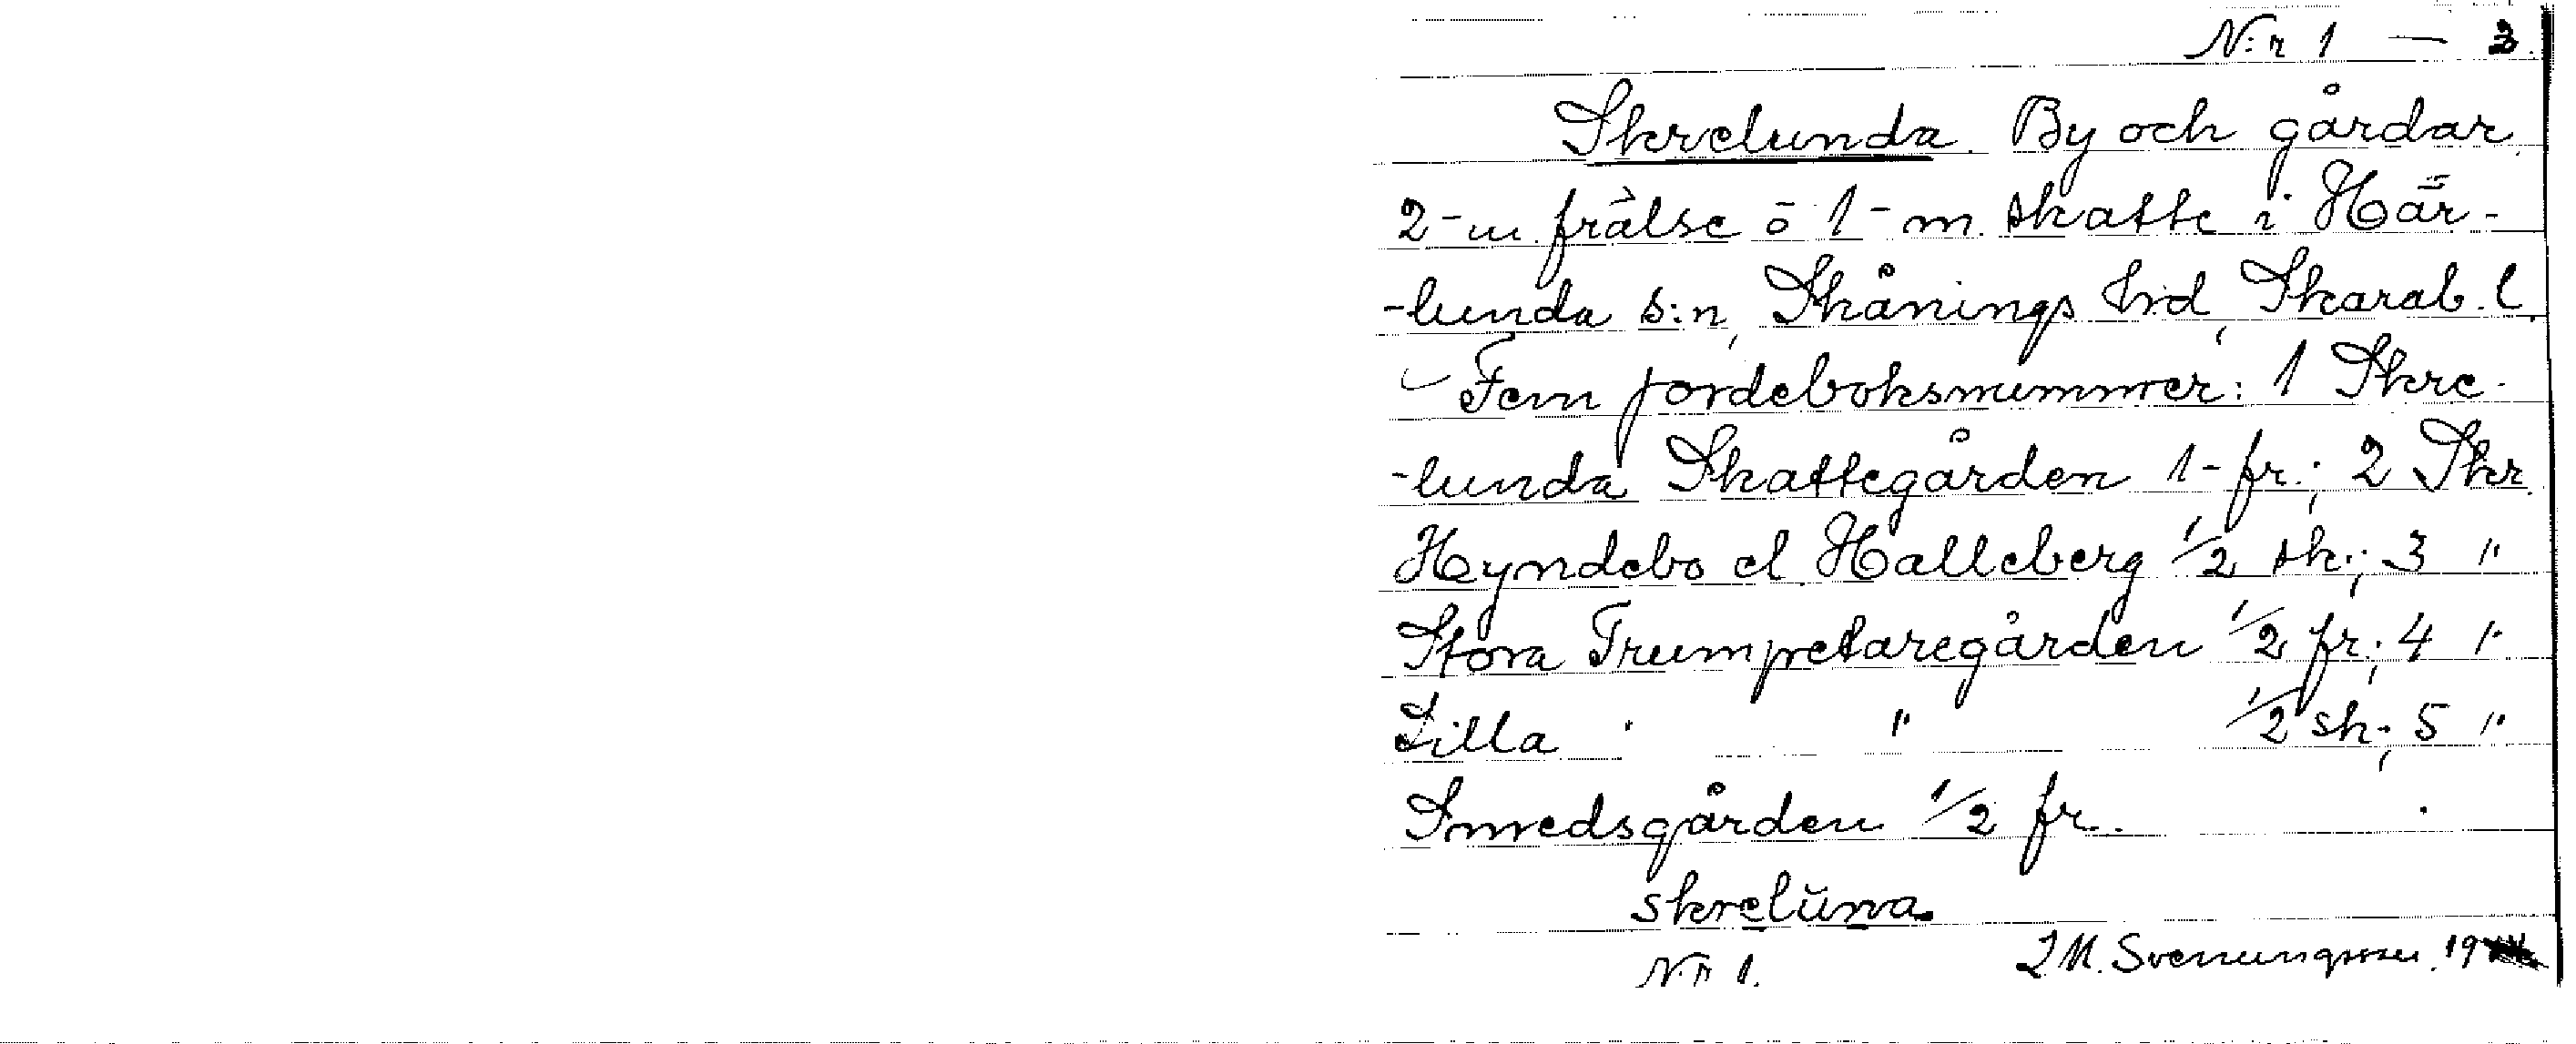 N:r 1 — 3.
Skrelunda. By och gårdar,
2-m frälse ō 1-m. skatte i Här-
-lunda s:n, Skånings hd, Skarab. l.
Fem jordeboksnummer: 1 Skre-
-lunda Skattegården 1-fr.; 2 Skr.
Hyndebo el. Halleberg 1/2 sk.; 3 "
Stora Trumpetaregården 1/2 fr.; 4 "
Lilla " " 1/2 sk.; 5 "
Smedsgården 1/2 fr.
skrelŭna.
N:r 1. J.M. Svenungsson. 19